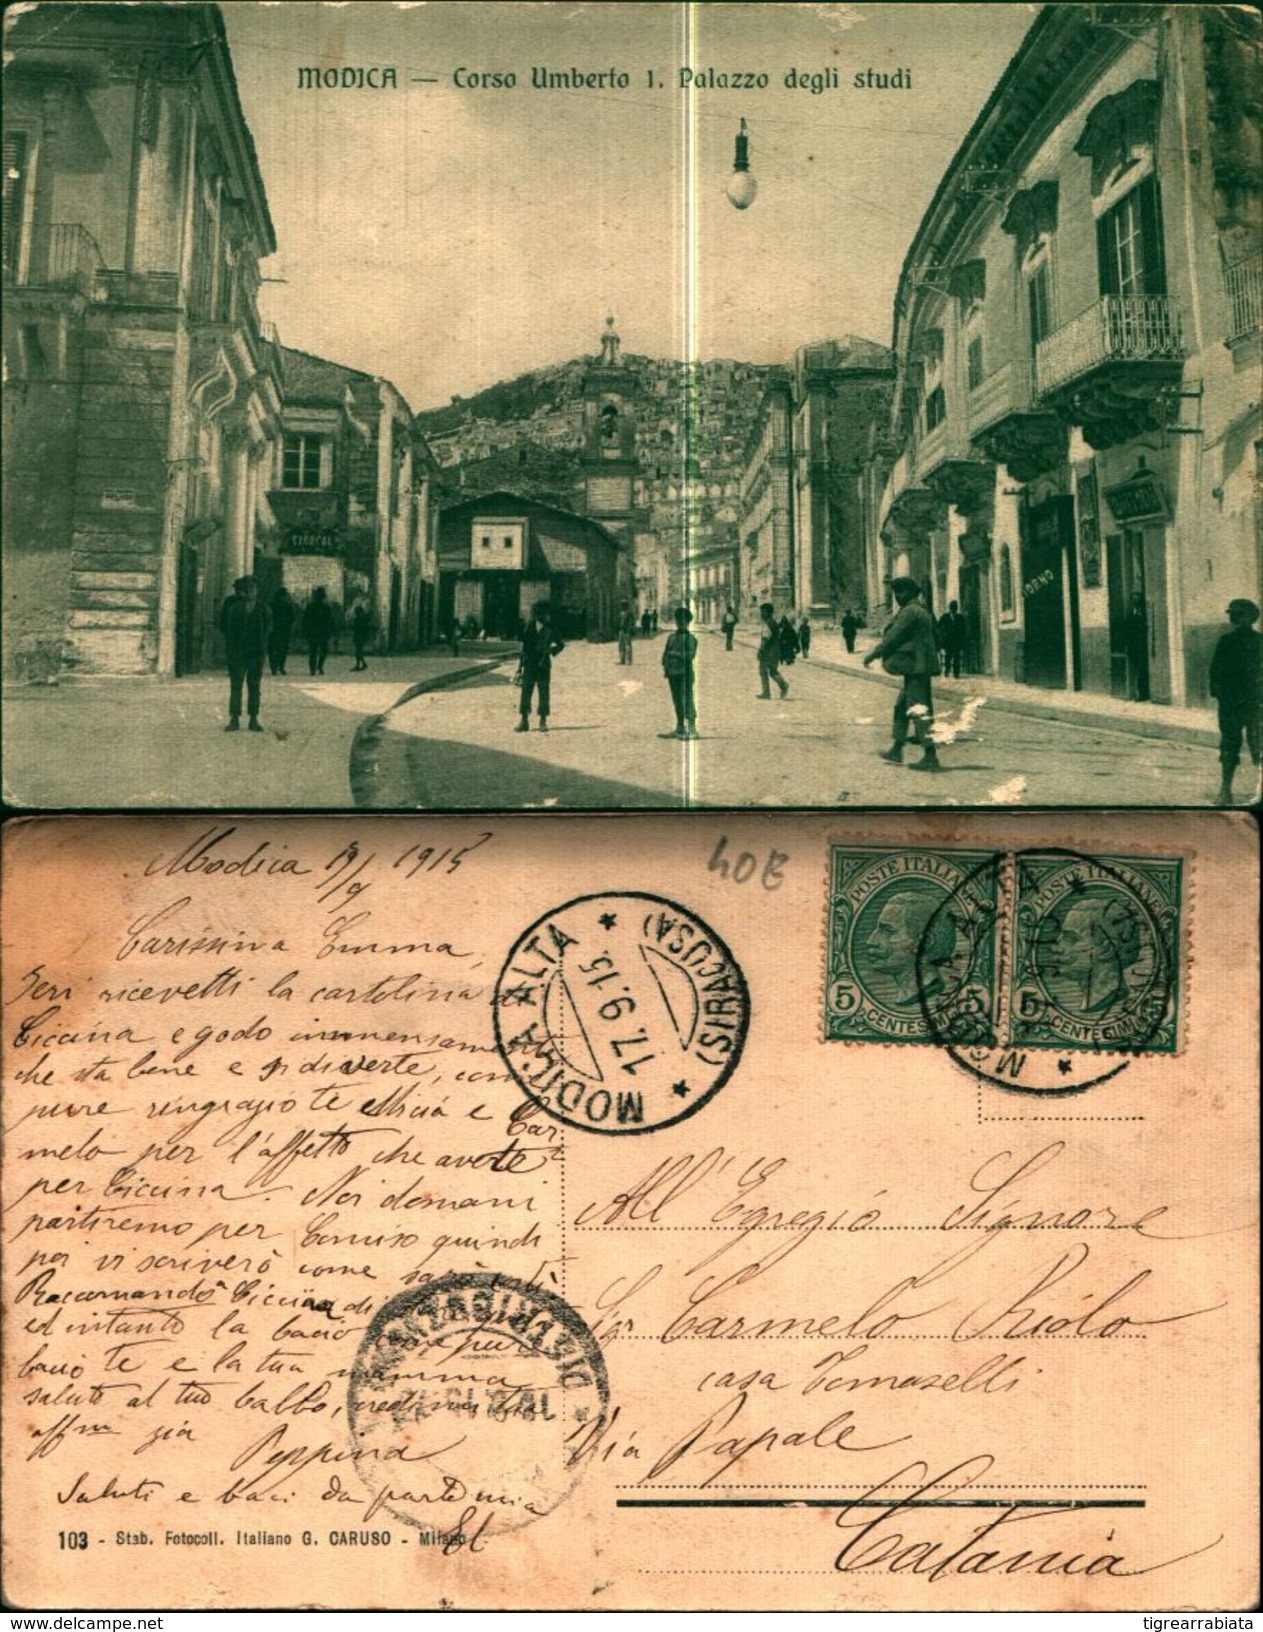 MODICA — Corso Umberto 1. Palazzo degli studi
FORNO
Modica 17/9 1915
40E
Carissima Emma,
Ieri ricevetti la cartolina di
Ciccina e godo immensamente
che sta bene e si diverte, come
pure ringrazio te Micia e Car
melo per l'affetto che avete
per Ciccina. Noi domani
partiremo per Comiso quindi
poi vi scriverò come sarò
Raccomando Ciccina di
ed intanto la bacio pure
bacio te e la tua mamma
saluto al tuo babbo, credimi tua
affma zia
Peppina
Saluti e baci da parte mia
MODICA ALTA
(SIRACUSA)
17.9.15.
POSTE ITALIANE
5 CENTESIMI 5
POSTE ITALIANE
5 CENTESIMI
MODICA ALTA
All' Egregio Signore
Sigr Carmelo Riolo
casa Tomaselli
Via Papale
Catania
DISTRIBUZIONE
103 - Stab. Fotocoll. Italiano G. CARUSO - Milano
www.delcampe.net
tigrearrabiata